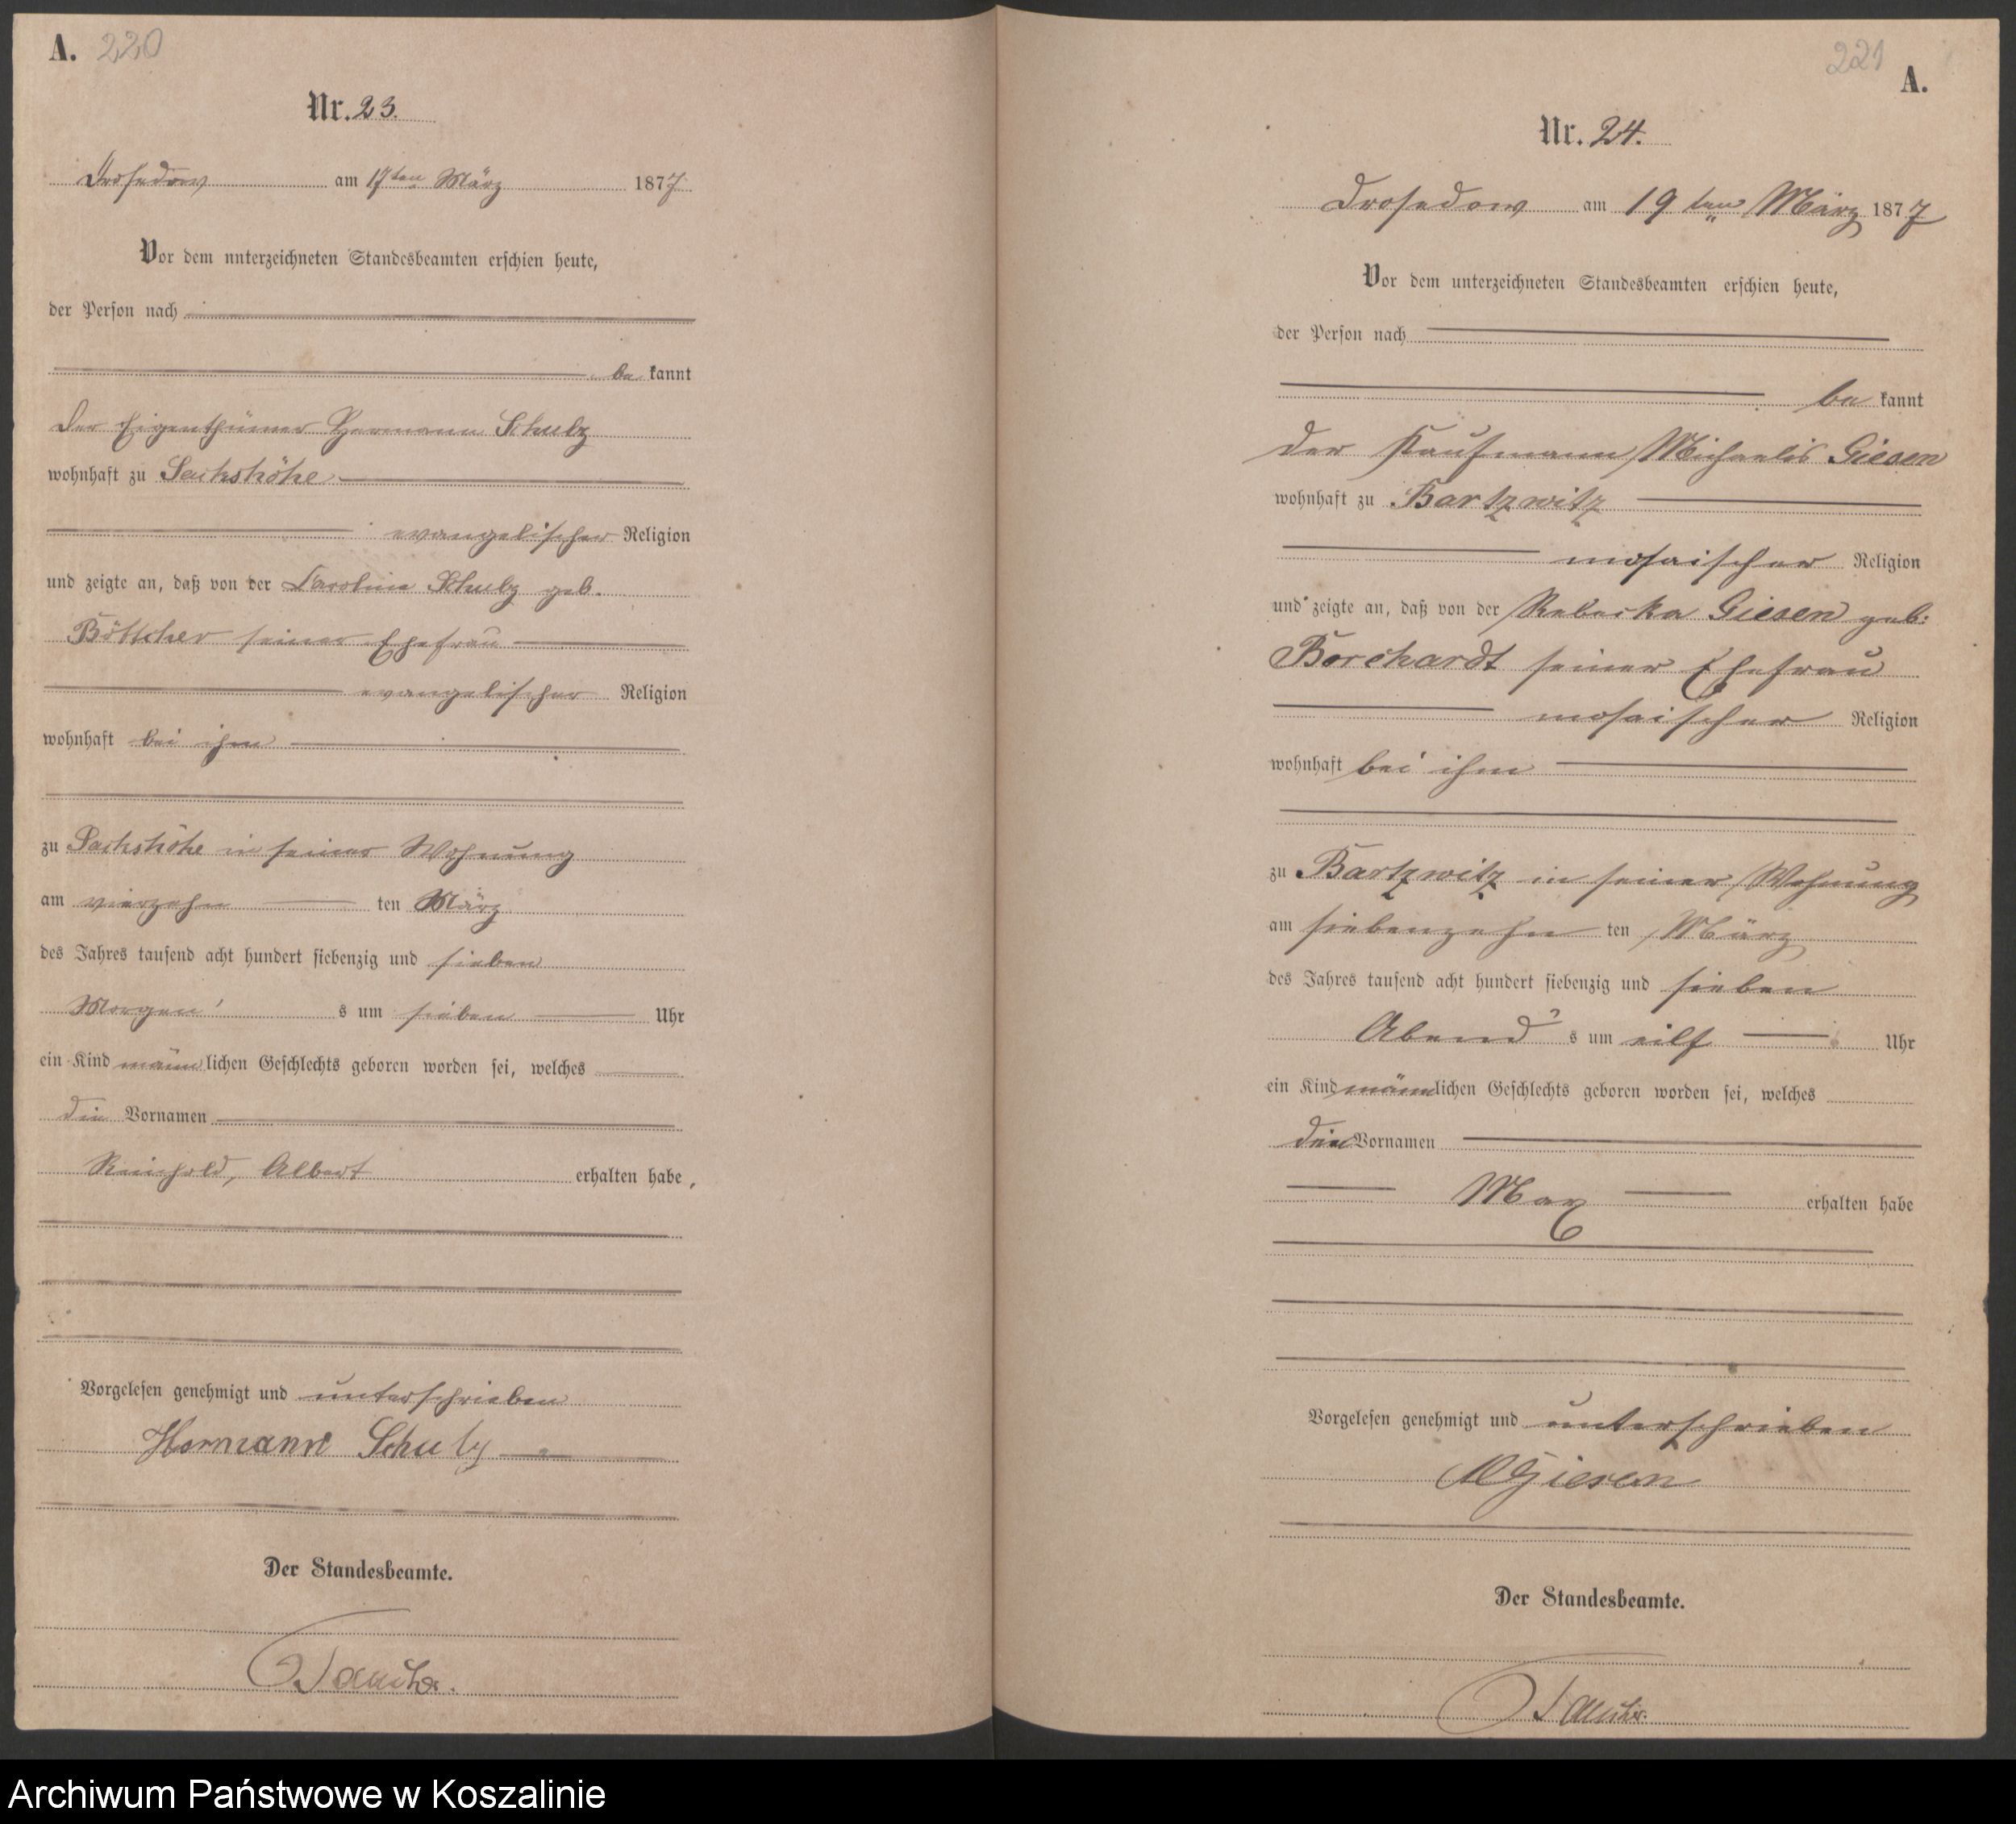 A. 220
Nr. 23.
Drosedow am 17ten März 1877
Vor dem unterzeichneten Standesbeamten erschien heute,
der Person nach
be kannt
der Eigenthümer Hermann Schulz
wohnhaft zu Sackshöhe
evangelischer Religion
und zeigte an, daß von der Caroline Schulz geb.
Böttcher seiner Ehefrau
evangelischer Religion
wohnhaft bei ihm
zu Sackshöhe in seiner Wohnung
am vierzehn ten März
des Jahres tausend acht hundert siebenzig und sieben
Morgen s um sieben Uhr
ein Kind männlichen Geschlechts geboren worden sei, welches
die Vornamen
Reinhold, Albert erhalten habe,
Vorgelesen genehmigt und unterschrieben
Hermann Schulz
Der Standesbeamte.
221 A.
Nr. 24.
Drosedow am 19ten März 1877
Vor dem unterzeichneten Standesbeamten erschien heute,
der Person nach
be kannt
der Kaufmann Michaelis Giesen
wohnhaft zu Bartzwitz
mosaischer Religion
und zeigte an, daß von der Rebecka Giesen geb:
Borchardt seiner Ehefrau
mosaischer Religion
wohnhaft bei ihm
zu Bartzwitz in seiner Wohnung
am siebenzehn ten März
des Jahres tausend acht hundert siebenzig und sieben
Abend s um eilf Uhr
ein Kind männlichen Geschlechts geboren worden sei, welches
den Vornamen
Max erhalten habe
Vorgelesen genehmigt und unterschrieben
MGiesen
Der Standesbeamte.
Archiwum Państwowe w Koszalinie